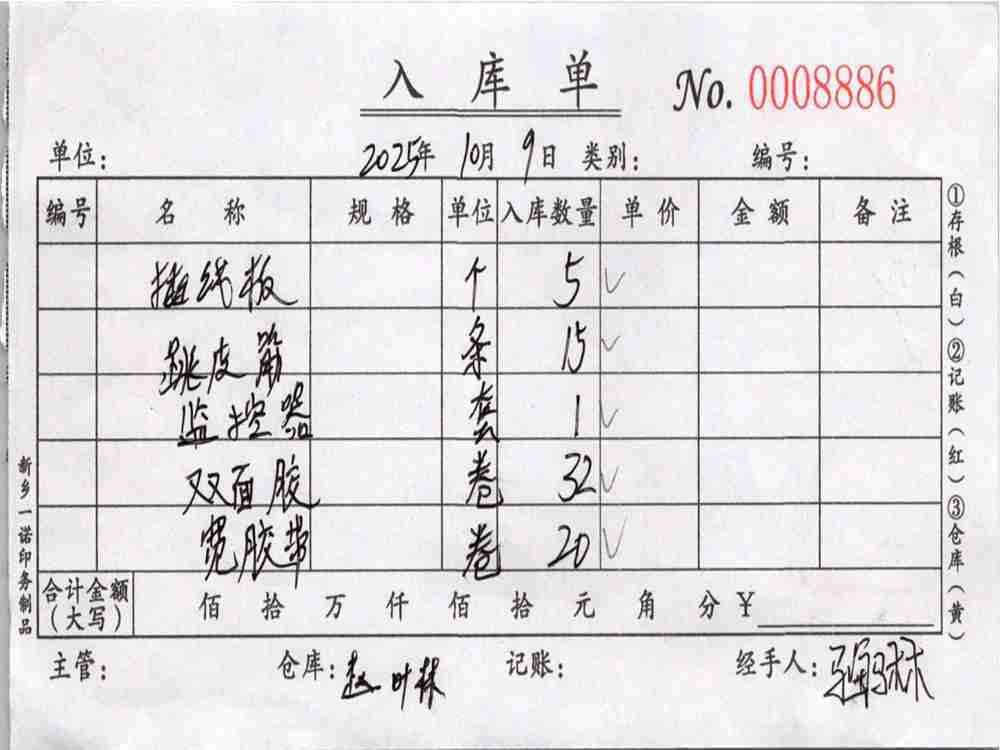 入库单 No. 0008886
单位： 2025年 10月 9日 类别： 编号：
编号 名称 规格 单位 入库数量 单价 金额 备注
插线板 个 5 ✓
跳皮筋 条 15 ✓
监控器 套 1 ✓
双面胶 卷 32 ✓
宽胶带 卷 20 ✓
合计金额（大写） 佰 拾 万 仟 佰 拾 元 角 分 ¥
主管： 仓库：赵叶林 记账： 经手人：
①存根（白）②记账（红）③仓库（黄）
新乡一诺印务制品